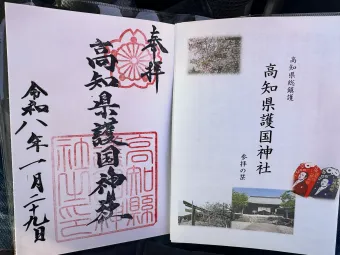 奉拝
高知県護国神社
令和八年一月二十九日
高知縣護國神社之印
高知県総鎮護
高知県護国神社
参拝の栞